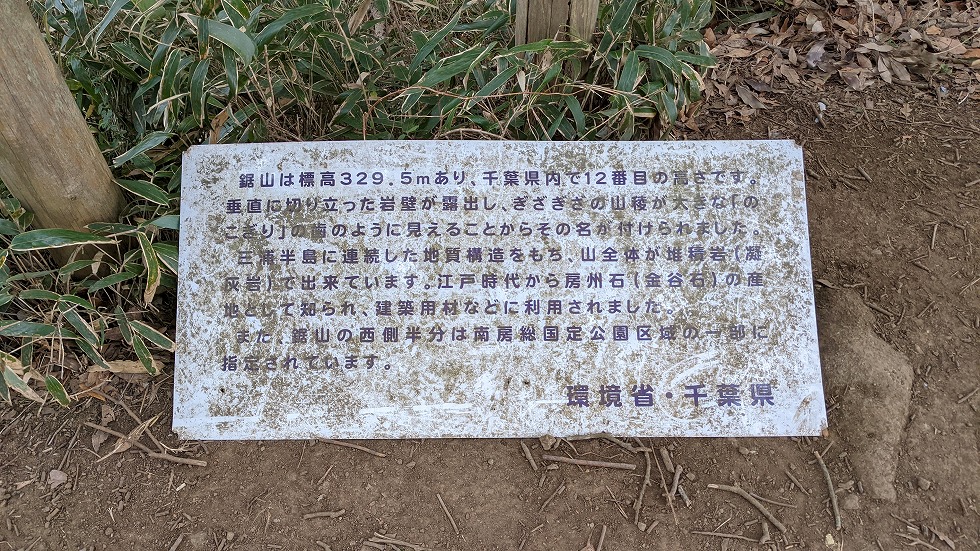 鋸山は標高329.5mあり、千葉県内で12番目の高さです。
垂直に切り立った岩壁が露出し、ぎざぎざの山稜が大きな「の
こぎり」の歯のように見えることからその名が付けられました。
三浦半島に連続した地質構造をもち、山全体が堆積岩(凝
灰岩)で出来ています。江戸時代から房州石(金谷石)の産
地として知られ、建築用材などに利用されました。
また、鋸山の西側半分は南房総国定公園区域の一部に
指定されています。
環境省・千葉県